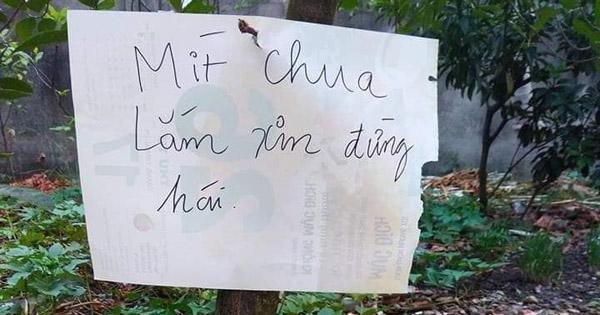 Mít chua
Lắm xin đừng
hái.